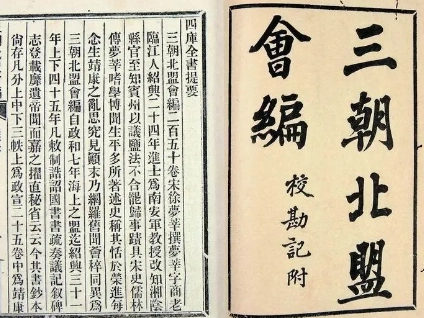 三朝北盟
會編
校勘記附
四庫全書提要
三朝北盟會編二百五十卷宋徐夢莘撰夢莘字商老
臨江人紹興二十四年進士爲南安軍教授改知湘陰
縣官至知賓州以議鹽法不合罷歸事蹟具宋史儒林
傳夢莘嗜學博聞生平多所著述史稱其恬於榮進每
念生靖康之亂思究見顚末乃網羅舊聞會稡同異爲
三朝北盟會編自政和七年海上之盟迄紹興三十一
年上下四十五年凡敕制誥詔國書書疏奏議記敘碑
志登載靡遺帝聞而嘉之擢直秘省云云今其書鈔本
尚存凡分上中下三帙上爲政宣二十五卷中爲靖康